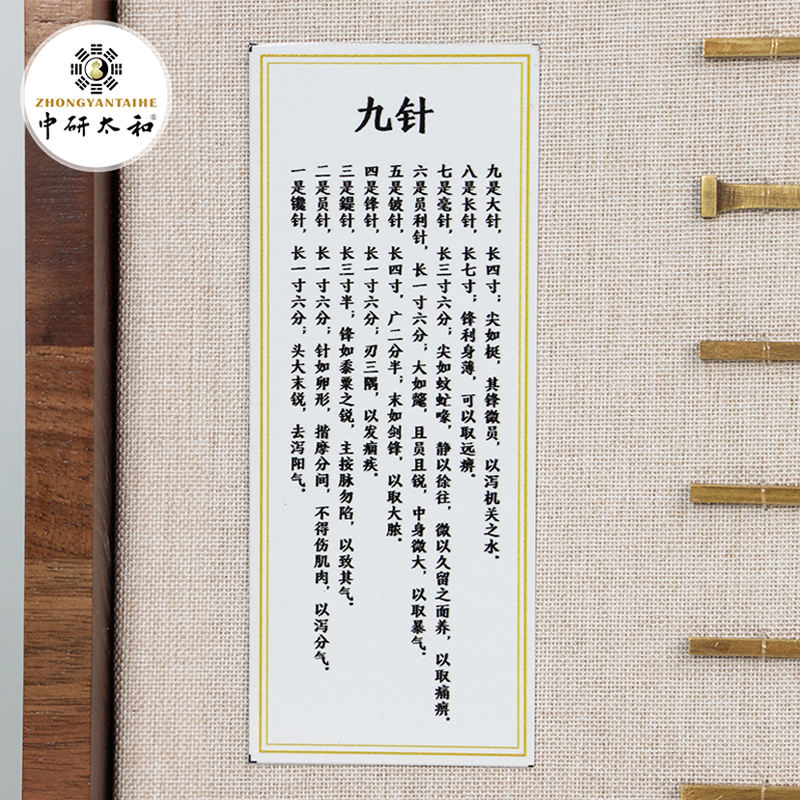 ZHONGYANTAIHE
中研太和®
九针
一是镵针，长一寸六分；头大末锐，去泻阳气。
二是员针，长一寸六分；针如卵形，揩摩分间，不得伤肌肉，以泻分气。
三是鍉针，长三寸半；锋如黍粟之锐，主按脉勿陷，以致其气。
四是锋针，长一寸六分；刃三隅，以发痼疾。
五是铍针，长四寸，广二分半；末如剑锋，以取大脓。
六是员利针，长一寸六分；大如氂，且员且锐，中身微大，以取暴气。
七是毫针，长三寸六分；尖如蚊虻喙，静以徐往，微以久留之而养，以取痛痹。
八是长针，长七寸；锋利身薄，可以取远痹。
九是大针，长四寸；尖如梃，其锋微员，以泻机关之水。